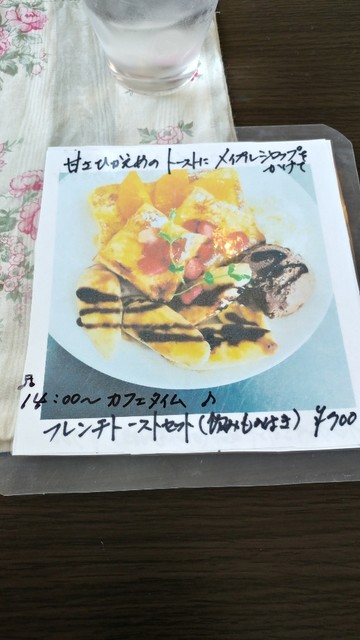 甘さひかえめの トーストに メイプルシロップを
かけて
♬
14:00〜 カフェタイム ♪
フレンチトーストセット(飲みものつき) ¥900